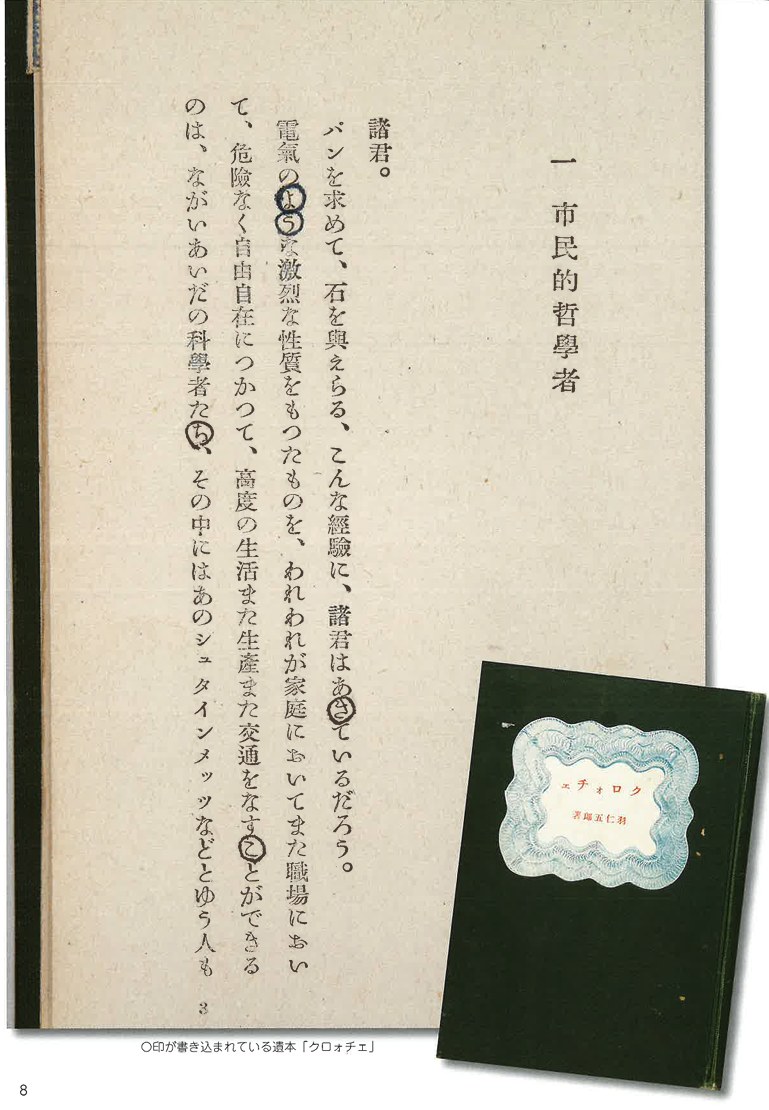 一 市民的哲學者
諸君。
パンを求めて、石を與えらる、こんな經驗に、諸君はあきているだろう。
電氣のような激烈な性質をもつたものを、われわれが家庭においてまた職場におい
て、危險なく自由自在につかつて、高度の生活また生產また交通をなすことができる
のは、ながいあいだの科學者たち、その中にはあのシュタインメッツなどとゆう人も
3
クロォチェ
羽仁五郎著
○印が書き込まれている遺本「クロォチェ」
8